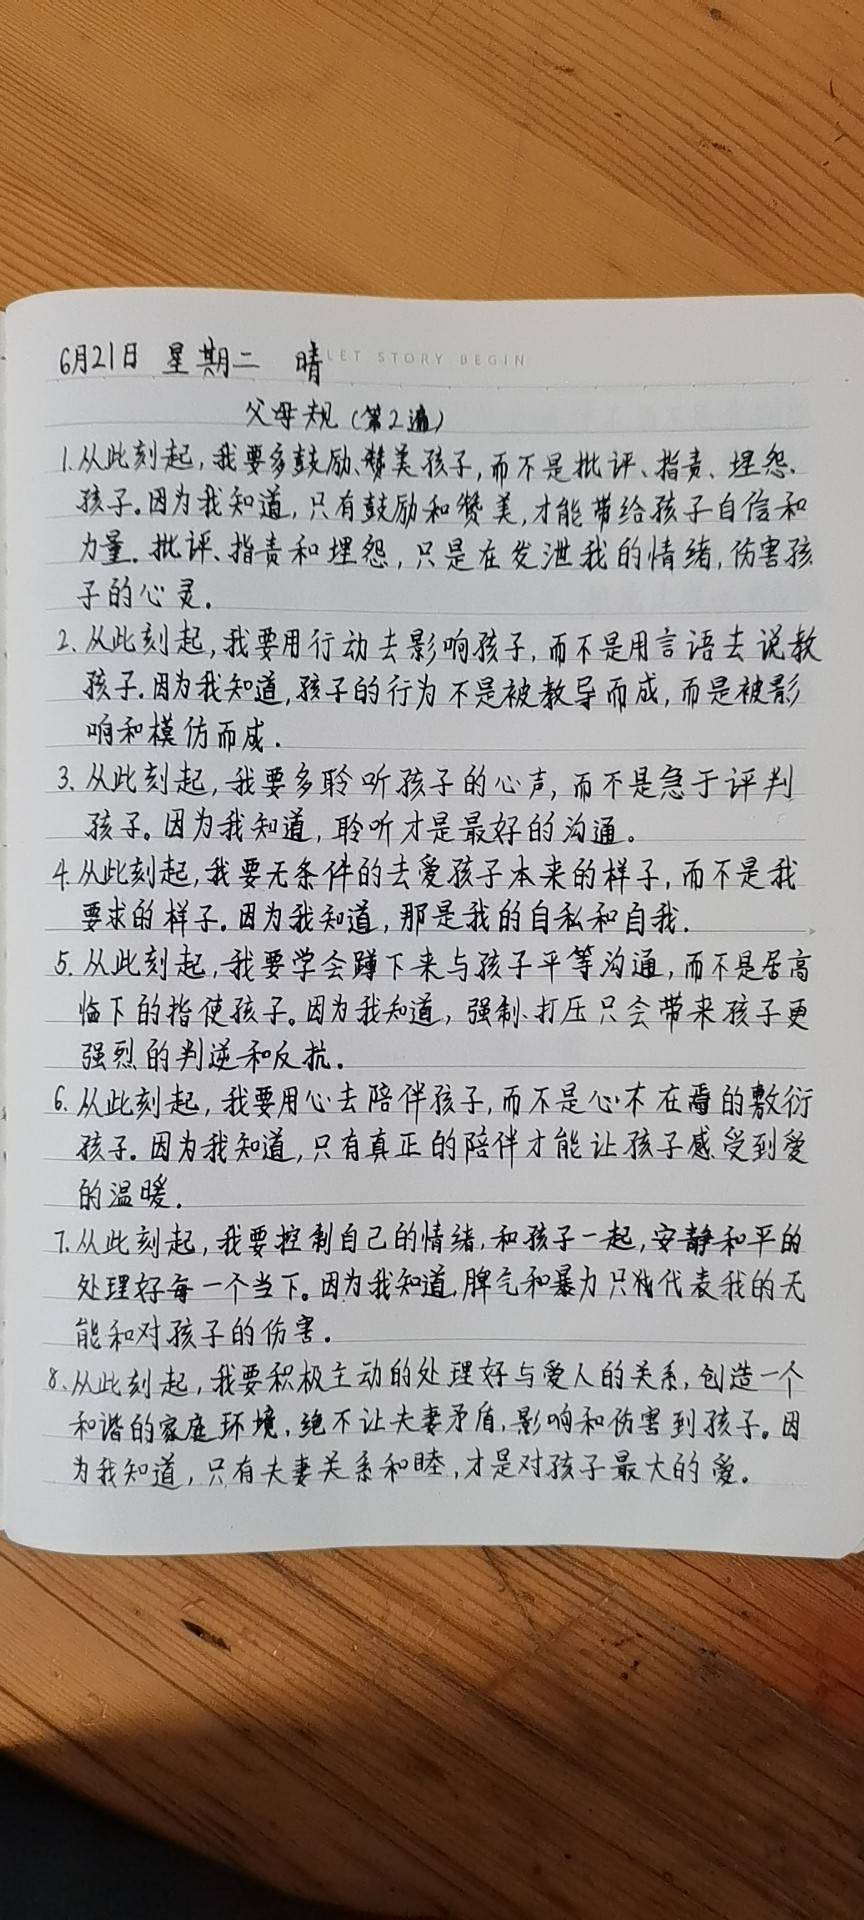 6月21日 星期二 晴 LET STORY BEGIN
父母规(第2遍)
1.从此刻起,我要多鼓励、赞美孩子,而不是批评、指责、埋怨.
孩子。因为我知道,只有鼓励和赞美,才能带给孩子自信和
力量。批评、指责和埋怨,只是在发泄我的情绪,伤害孩
子的心灵。
2.从此刻起,我要用行动去影响孩子,而不是用言语去说教
孩子.因为我知道,孩子的行为不是被教导而成,而是被影
响和模仿而成.
3.从此刻起,我要多聆听孩子的心声,而不是急于评判
孩子。因为我知道,聆听才是最好的沟通。
4.从此刻起,我要无条件的去爱孩子本来的样子,而不是我
要求的样子。因为我知道,那是我的自私和自我.
5.从此刻起,我要学会蹲下来与孩子平等沟通,而不是居高
临下的指使孩子。因为我知道,强制、打压只会带来孩子更
强烈的判逆和反抗.
6.从此刻起,我要用心去陪伴孩子,而不是心不在焉的敷衍
孩子.因为我知道,只有真正的陪伴才能让孩子感受到爱
的温暖.
7.从此刻起,我要控制自己的情绪,和孩子一起,安静和平的
处理好每一个当下。因为我知道,脾气和暴力只能代表我的无
能和对孩子的伤害.
8、从此刻起,我要积极主动的处理好与爱人的关系,创造一个
和谐的家庭环境,绝不让夫妻矛盾,影响和伤害到孩子。因
为我知道,只有夫妻关系和睦,才是对孩子最大的爱。